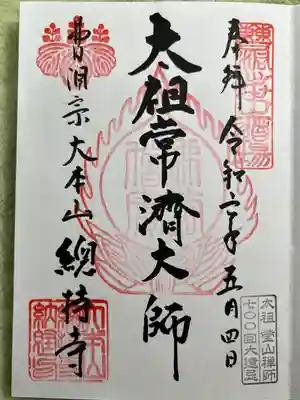 奉拝 令和六年 五月四日
太祖常濟大師
曹洞宗 大本山 總持寺
太祖 瑩山禅師
七〇〇回大遠忌